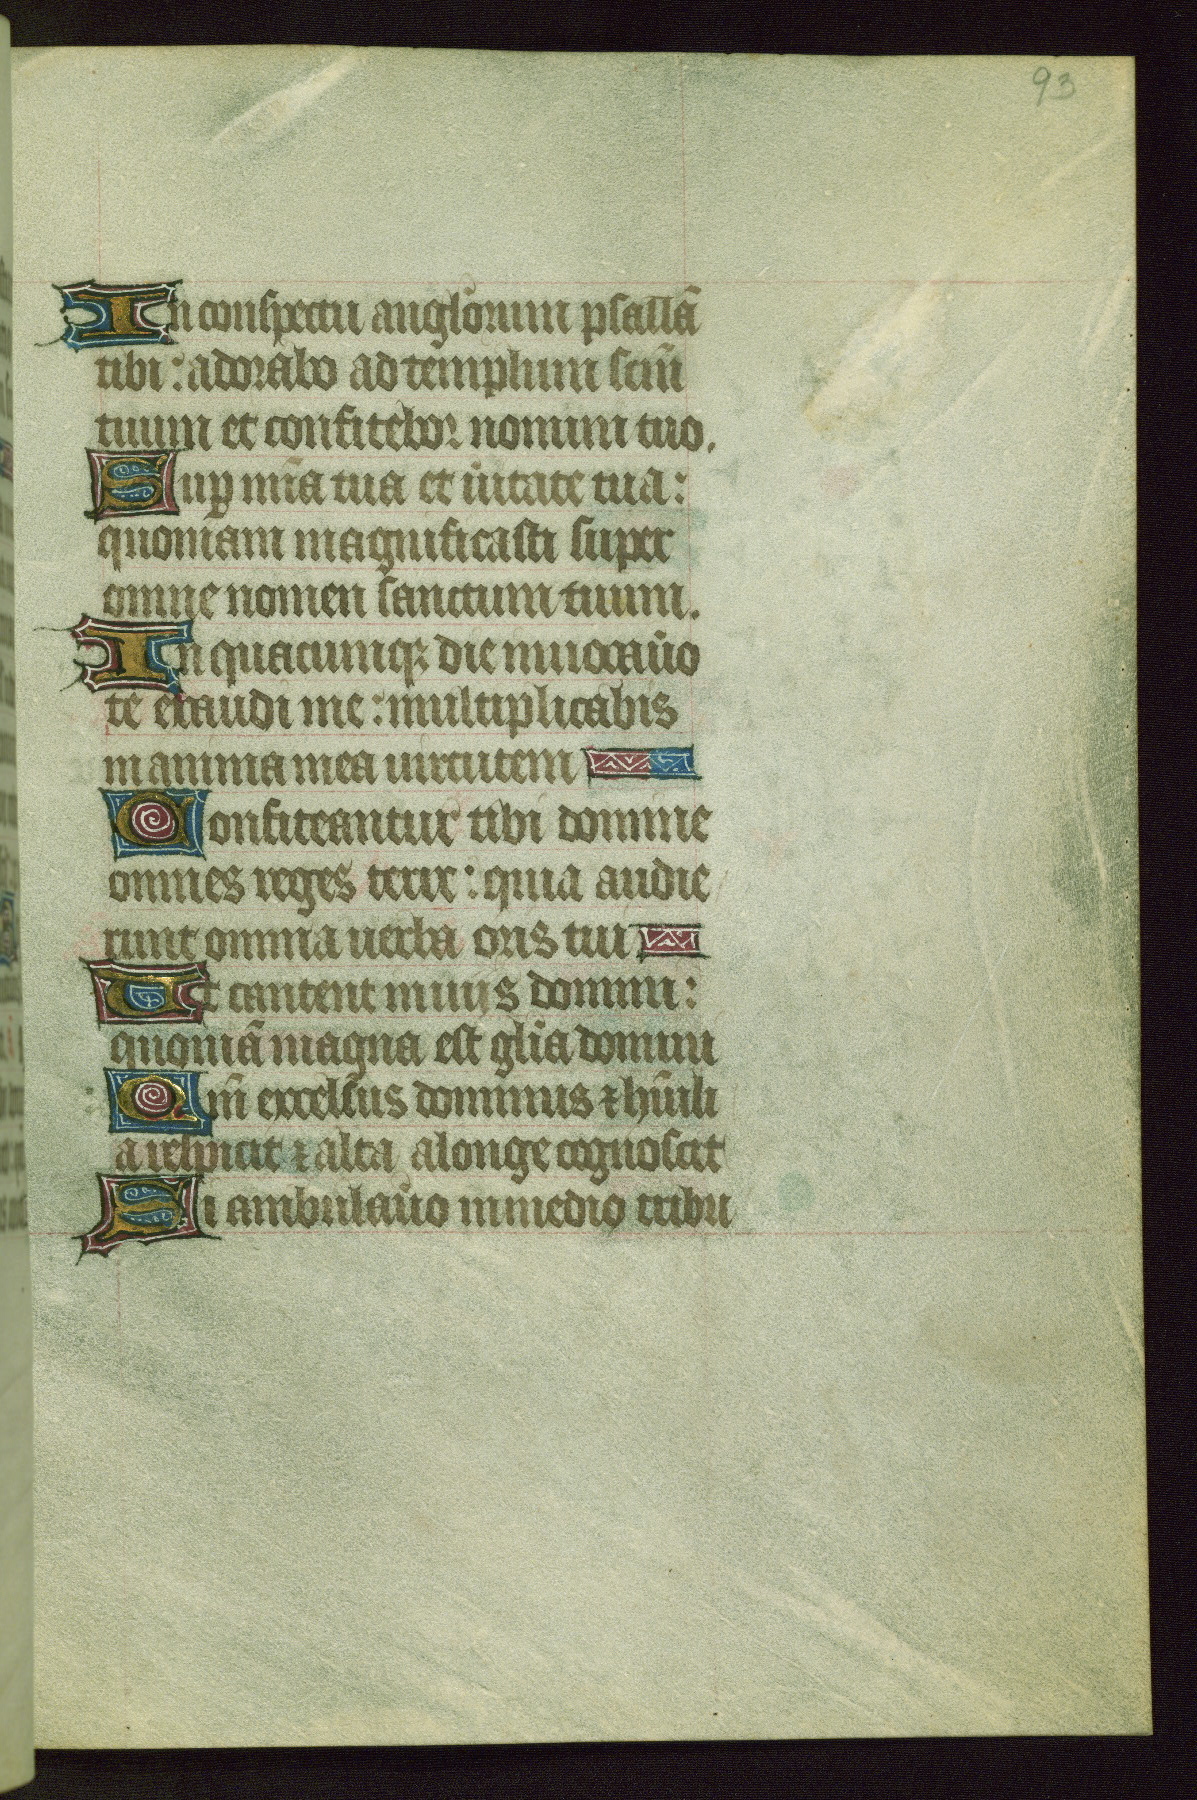 93
In conspectu angl'orum psallā
tibi : adorabo ad templum scm̄
tuum et confitebor nomini tuo.
Sup mīa tua et ūitate tua :
quoniam magnificasti super
omne nomen sanctum tuum.
In quacumq; die inuocaūo
te exaudi me : multiplicabis
in anima mea uirtutem
Confiteantur tibi domine
omnes reges terre : quia audie
runt omnia uerba oris tui
Et cantent in uijs domini :
quoniā magna est glīa domini
Qm̄ excelsus dominus ⁊ hūili
a respicit ⁊ alta alonge cognoscit
Si ambulaūo in medio tribu